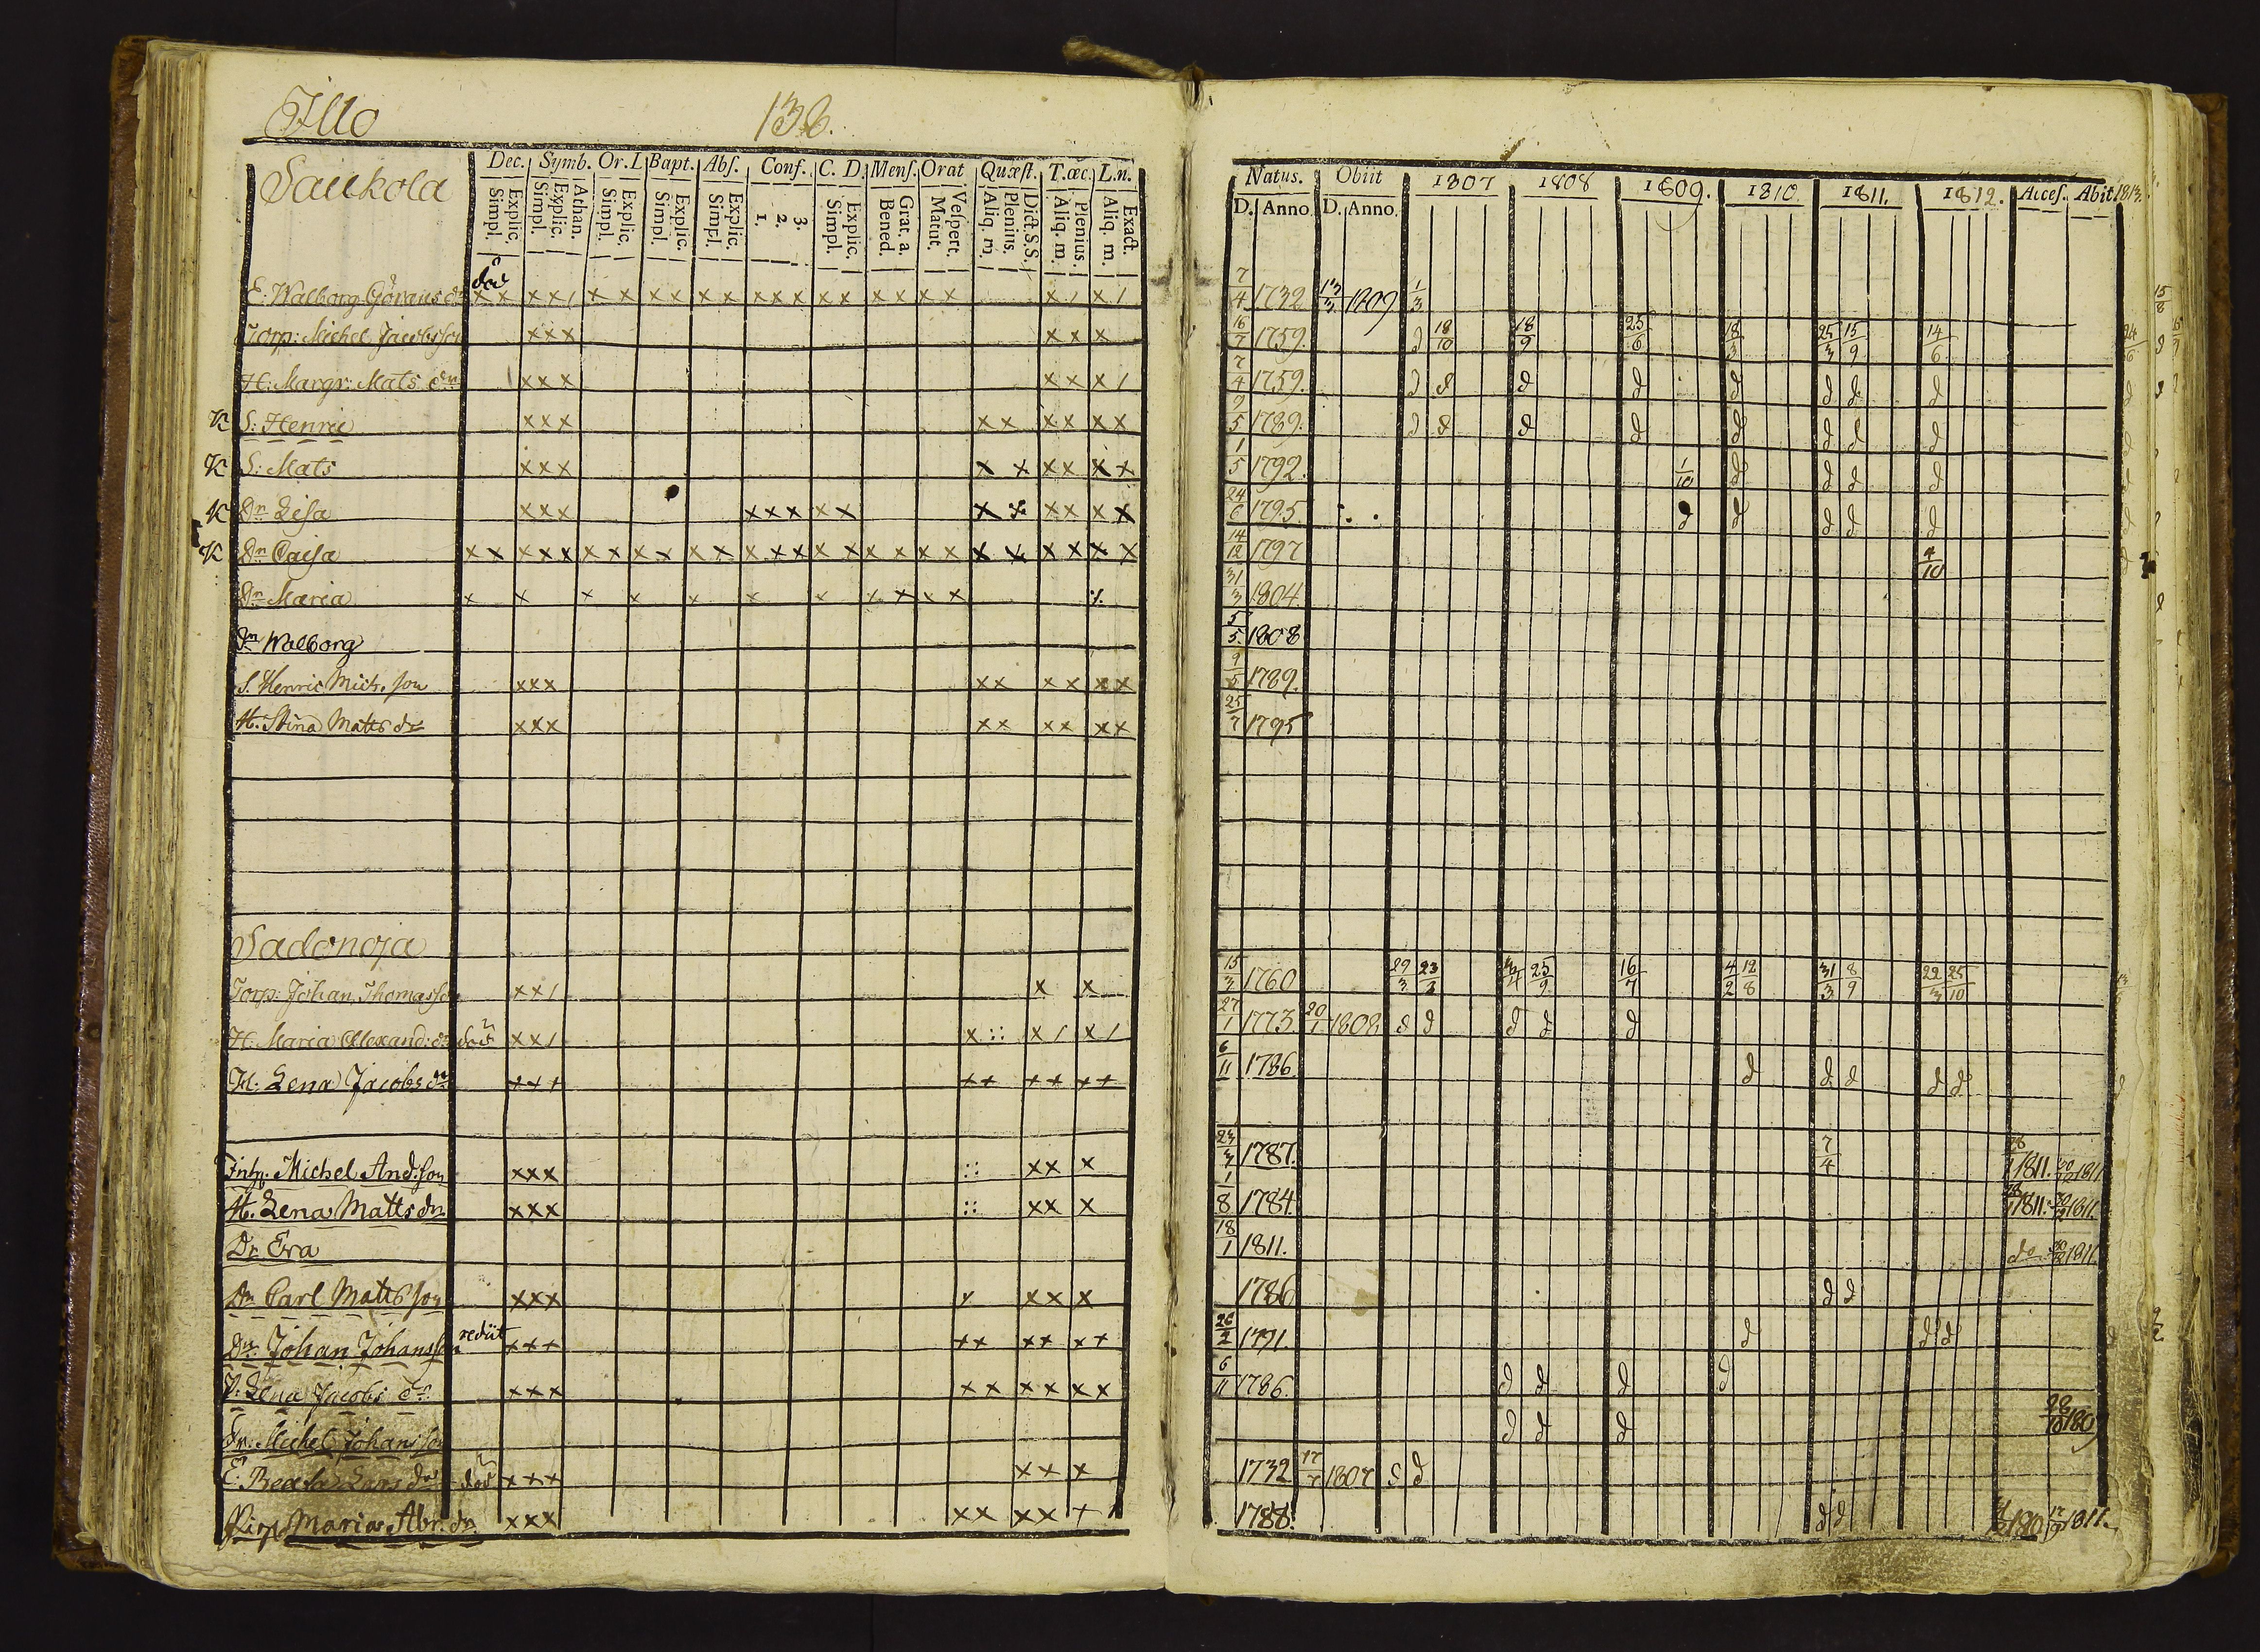 Illo
136.
Saukola
Dec. Symb. Or. L Bapt. Abſ. Conf. C. D. Menſ. Orat Quæſt. T. œc. L. n.
Explic. Simpl. Athan. Explic. Simpl. Explic. Simpl. Explic. Simpl. Explic. Simpl. 3. 2. 1. Explic. Simpl. Grat. a. Bened. Veſpert. Matut. Dict. S.S. Plenius. Aliq. m. Plenius. Aliq. m Exact. Aliq. m.
Natus. Obiit 1807 1808 1809. 1810. 1811. 1812. Acceſ. Abit 1813.
D. Anno D. Anno.
E: Walborg Görans dr död x x x x / x x x x x x x x x x x x x x x x / x / 7/4 1732 13/3 1809 1/3
Torp: Michel Jacobsson x x x x x x 16/7 1759. d 18/10 18/9 25/6 18/3 25/3 15/9 14/6
H: Margr: Mats dr x x x x x x / 7/4 1759. d d d d d d d d
K S: Henric x x x x x x x x x 9/5 1789. d d d d d d d d
K S: Mats x x x x x x x x x 1/5 1792. 1/10 d d d d
K Dr Lisa x x x x x x x x x x x x x x 24/6 1795. d d d d d
K Dr Caisa x x x x x x x x x x x x x x x x x x x x x x x x x 14/12 1797 4/10
Dr Maria x x x x x x x x x x x 31/3 1804.
Dr Walborg 5/5. 1808
S. Henric Mich. son x x x x x x x x x 9/5 1789.
H. Stina Matts dr x x x x x x x x x 25/7 1795
Sadonoja
Torp: Johan Thomasson x x / x x 15/3 1760 29/3 25/9 16/7 4/2 12/8 31/3 8/9 22/3 25/10
H. Maria Alexand: dr död x x / x :: x / x / 27/1 1773 20/1 1808 d d d d d
H. Lena Jacobs dr x x x x x x x x x 6/11 1786 d d d d d
Inh. Michel And.son x x x :: x x x 23/3 1787. 7/4 1811. 1811
H. Lena Matts dr x x x :: x x x 1/8 1784. 1811. 1811.
Dr Eva 18/1 1811. do 1811.
Dr Carl Mattsson x x x x x x 1786 d d
Dr. Johan Johansson rediit x x x x x x x x x 26/2 1791. d d d
P: Lena Jacobs dr x x x x x x x x x 6/11 1786. d d d d
Dr. Michel Johansson d d d 28/10 1809
E. Beata Lars dr död x x x x x x 1732 17/7 1807 d d
Pig Maria Abr. dr. x x x x x x x + / 1788. d d 1811.